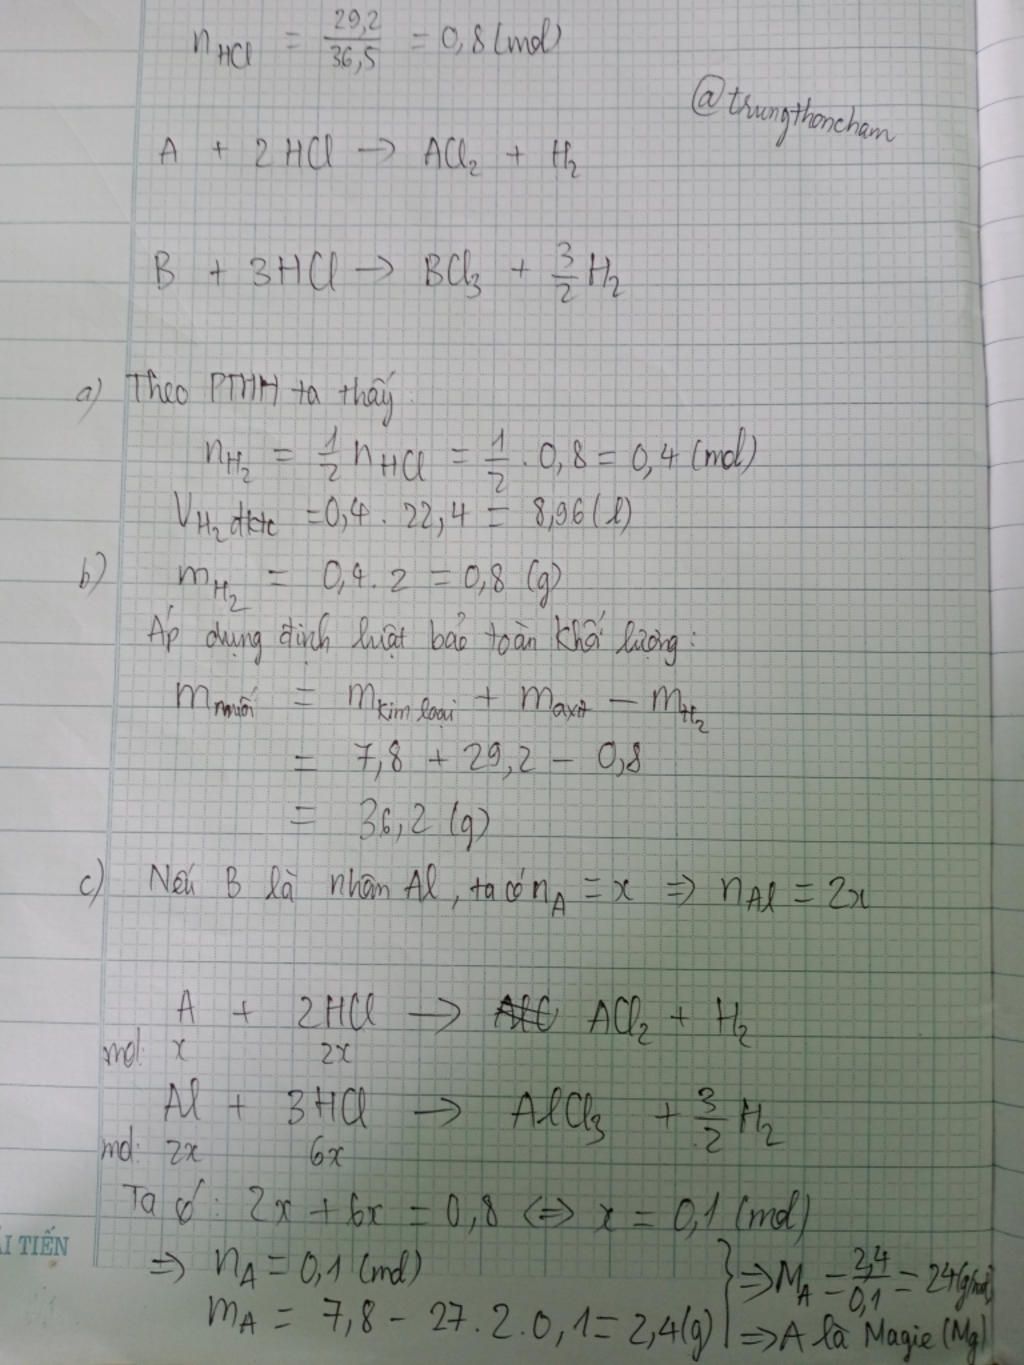 n_HCl = 29,2/36,5 = 0,8 (mol)
@trungthoncham
A + 2HCl → ACl₂ + H₂
B + 3HCl → BCl₃ + 3/2 H₂
a) Theo PTHH ta thấy:
n_H₂ = 1/2 n_HCl = 1/2 . 0,8 = 0,4 (mol)
V_H₂ đktc = 0,4 . 22,4 = 8,96 (l)
b) m_H₂ = 0,4 . 2 = 0,8 (g)
Áp dụng định luật bảo toàn khối lượng:
m_muối = m_kim loại + m_axit − m_H₂
= 7,8 + 29,2 − 0,8
= 36,2 (g)
c) Nếu B là nhôm Al, ta có n_A = x ⇒ n_Al = 2x
A + 2HCl → ACl₂ + H₂
mol: x 2x
Al + 3HCl → AlCl₃ + 3/2 H₂
mol: 2x 6x
Ta có: 2x + 6x = 0,8 ⇔ x = 0,1 (mol)
ẢI TIẾN
⇒ n_A = 0,1 (mol)
m_A = 7,8 − 27 . 2 . 0,1 = 2,4 (g)
} ⇒ M_A = 2,4/0,1 = 24 (g/mol)
⇒ A là Magie (Mg)